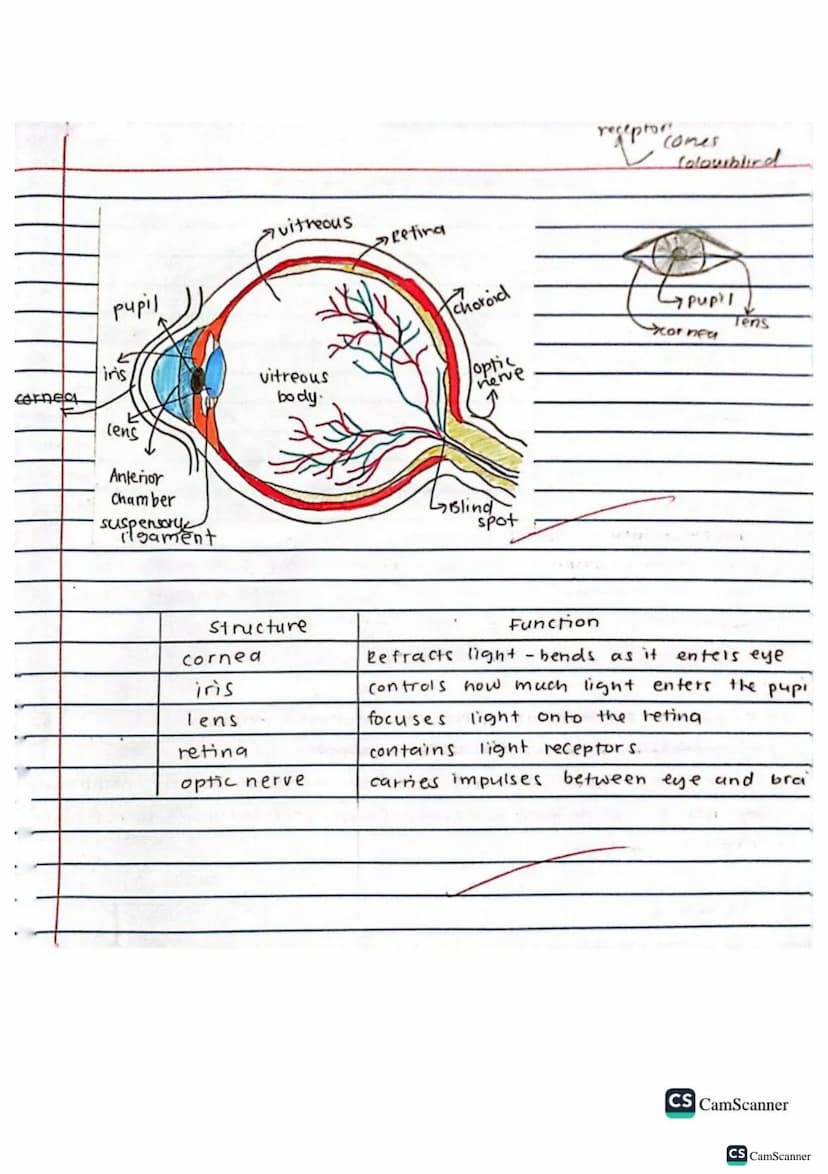 receptor
cones
colourblind
vitreous
Retina
pupil
choroid
iris
vitreous
body.
optic
nerve
cornea
lens
Anterior
chamber
suspensory
ligament
Blind
spot
pupil
lens
cornea
Structure Function
cornea Refracts light - bends as it enters eye
iris controls how much light enters the pupi
lens focuses light onto the retina
retina contains light receptors.
optic nerve carries impulses between eye and brai
CS CamScanner
CS CamScanner